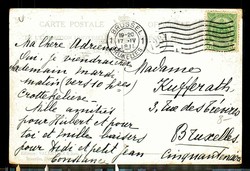 CARTE POSTALE
BRUSSEL
19-20
BRUXELLES
Ma chère Adrienne
Oui je viendrai
mardi
matin vers 10 hres
Mille amitiés
pour Hubert et pour
toi et mille baisers
pour Dédé et petit Jean
Constance
Madame
Kufferath
3, rue des
Bruxelles
Cinquantenaire